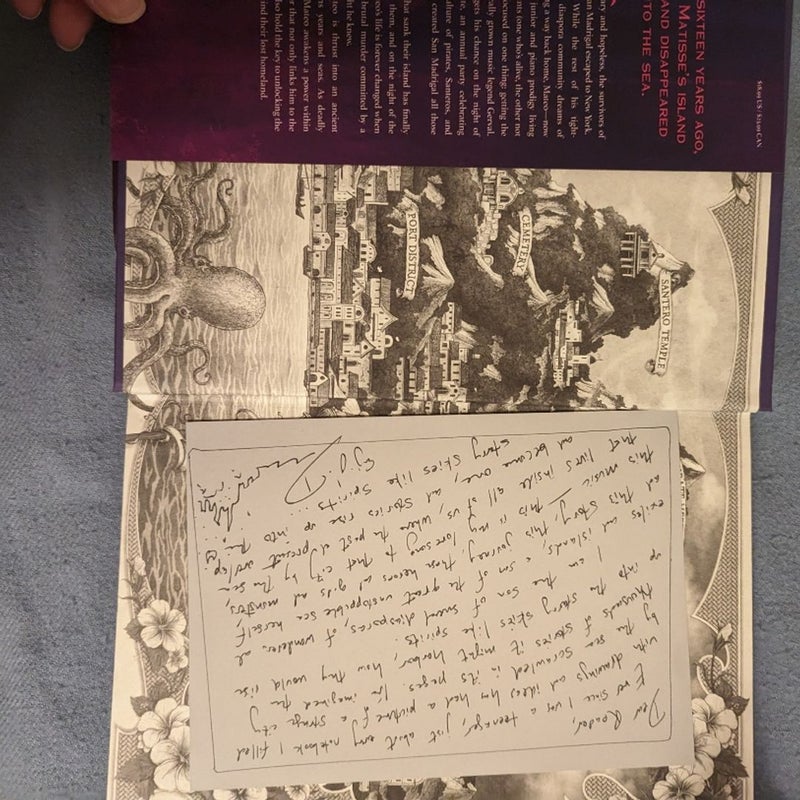 $18.99 US / $24.99 CAN
SIXTEEN YEARS AGO,
MATISSE'S ISLAND
AND DISAPPEARED
TO THE SEA.
ry and hopeless, the survivors of
an Madrigal escaped to New York
While the rest of his tight-
diaspora community dreams of
g a way back home, Mateo—now
junior and piano prodigy living
nts (one who's also the other not
ocused on one thing: getting the
ally grown music legend Gerval.
gets his chance on the night of
te, an annual party celebrating
ulture of pirates, Santeros, and
created San Madrigal all those
hat sank their island has finally
them, and on the night of the
eo's life is forever changed when
brutal murder committed by a
ht he knew.
teo is thrust into an ancient
ns years and seas. As deadly
Mateo awakens a power within
r that not only links him to the
lso hold the key to unlocking the
nd their lost homeland.
SANTERO TEMPLE
CEMETERY
PORT DISTRICT
Dear Reader,
Ever since I was a teenager, just about every notebook I filled
with drawings and ideas has had a picture of a strange city
by the sea scrawled in its pages. I'd imagined the
thousands of stories it might harbor, how they would rise
up into the starry skies like spirits.
I am the son of the great diasporas, of wonder and
exiles and islands, a son of those heroes and gods and monsters,
and this story, this journey, love song to that city by the sea
this music is my where the past and present overlap
that lives inside all of us, and stories rise up into the
and become one, starry skies like spirits